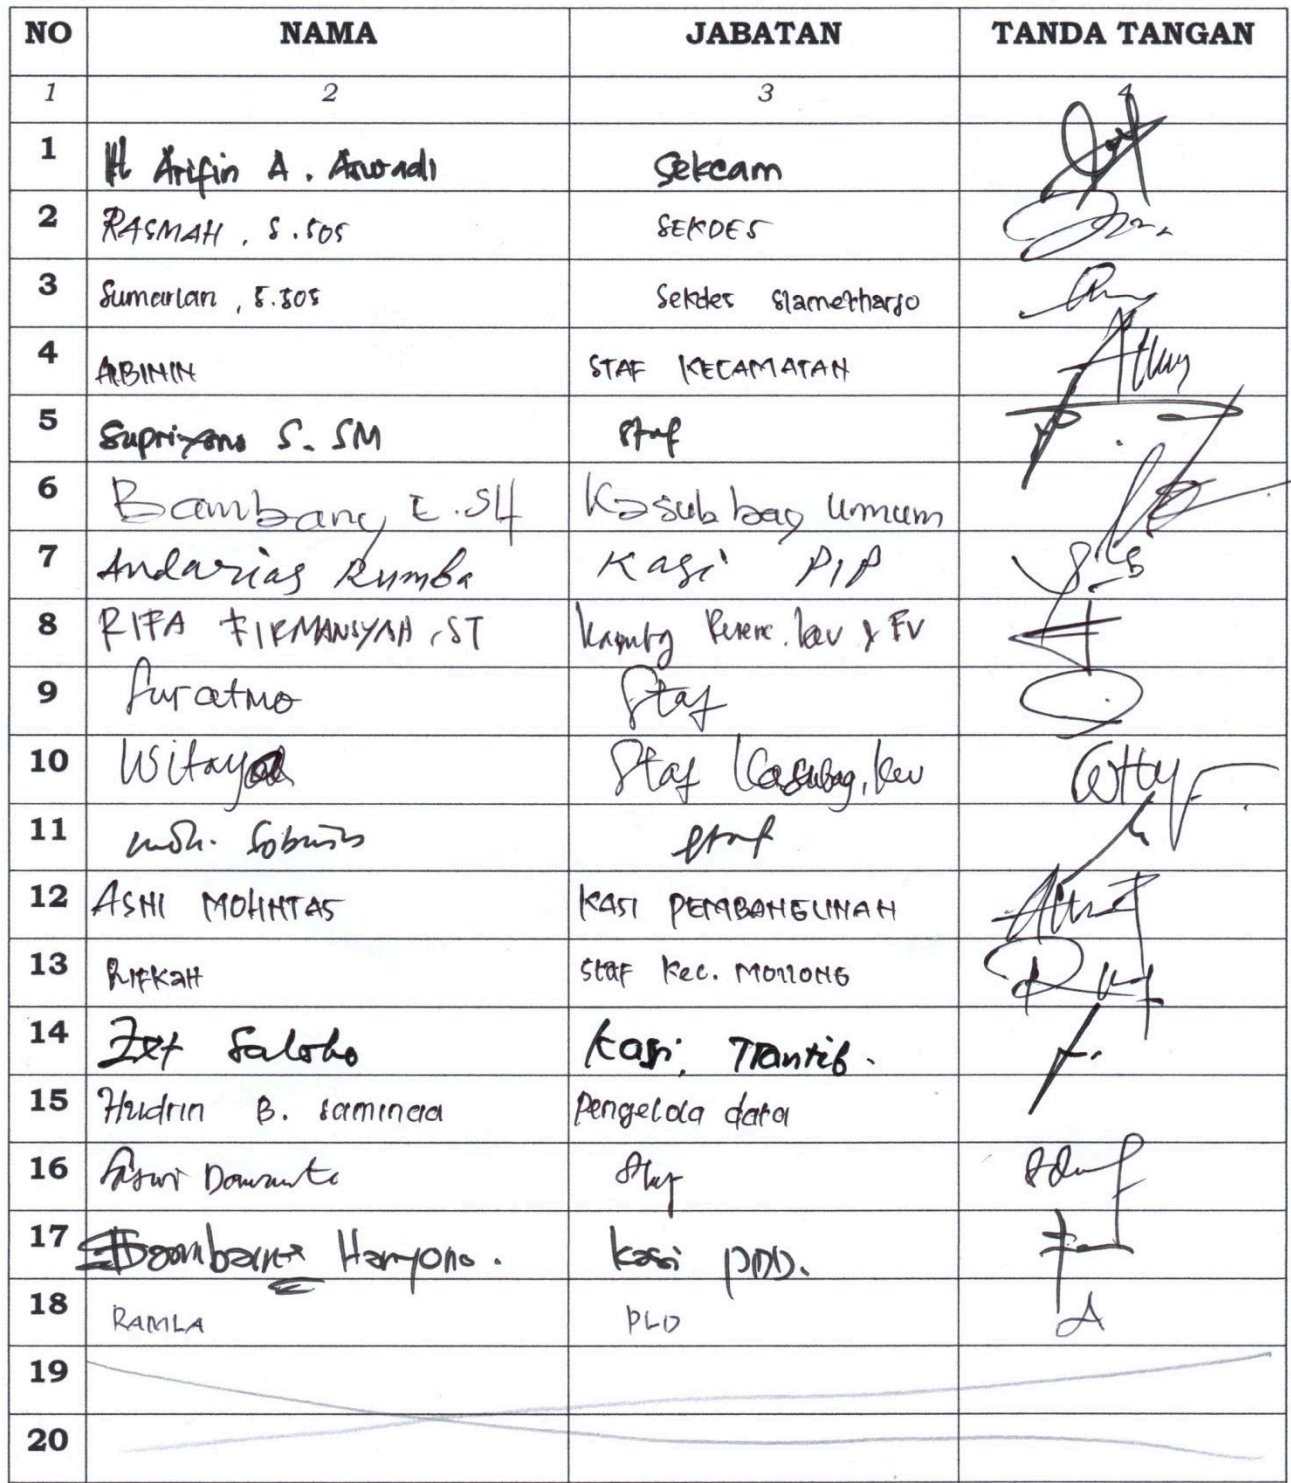 NO NAMA JABATAN TANDA TANGAN
1 2 3 4
1 H Arifin A. Aswadi Sekcam
2 RASMAH, S.SOS SEKDES
3 Sumarlan, S.SOS Sekdes Slametharjo
4 ARBININ STAF KECAMATAN
5 Supriyono S. SM Staf
6 Bambang E. SH Kasub bag Umum
7 Andarias Rumba Kasi PIP
8 RIFA FIRMANSYAH, ST
9 Suratmo Staf
10 Staf Kasubag, keu
11 Moh. Staf
12 ASNI MOHNTAS KASI PEMBANGUNAN
13 RIFKAH Staf Kec. MOILONG
14 Kasi, Trantib.
15 Hudrin B. Pengelola data
16 Staf
17 Bambang Haryono. Kasi PMD.
18 RAMLA PLD
19
20